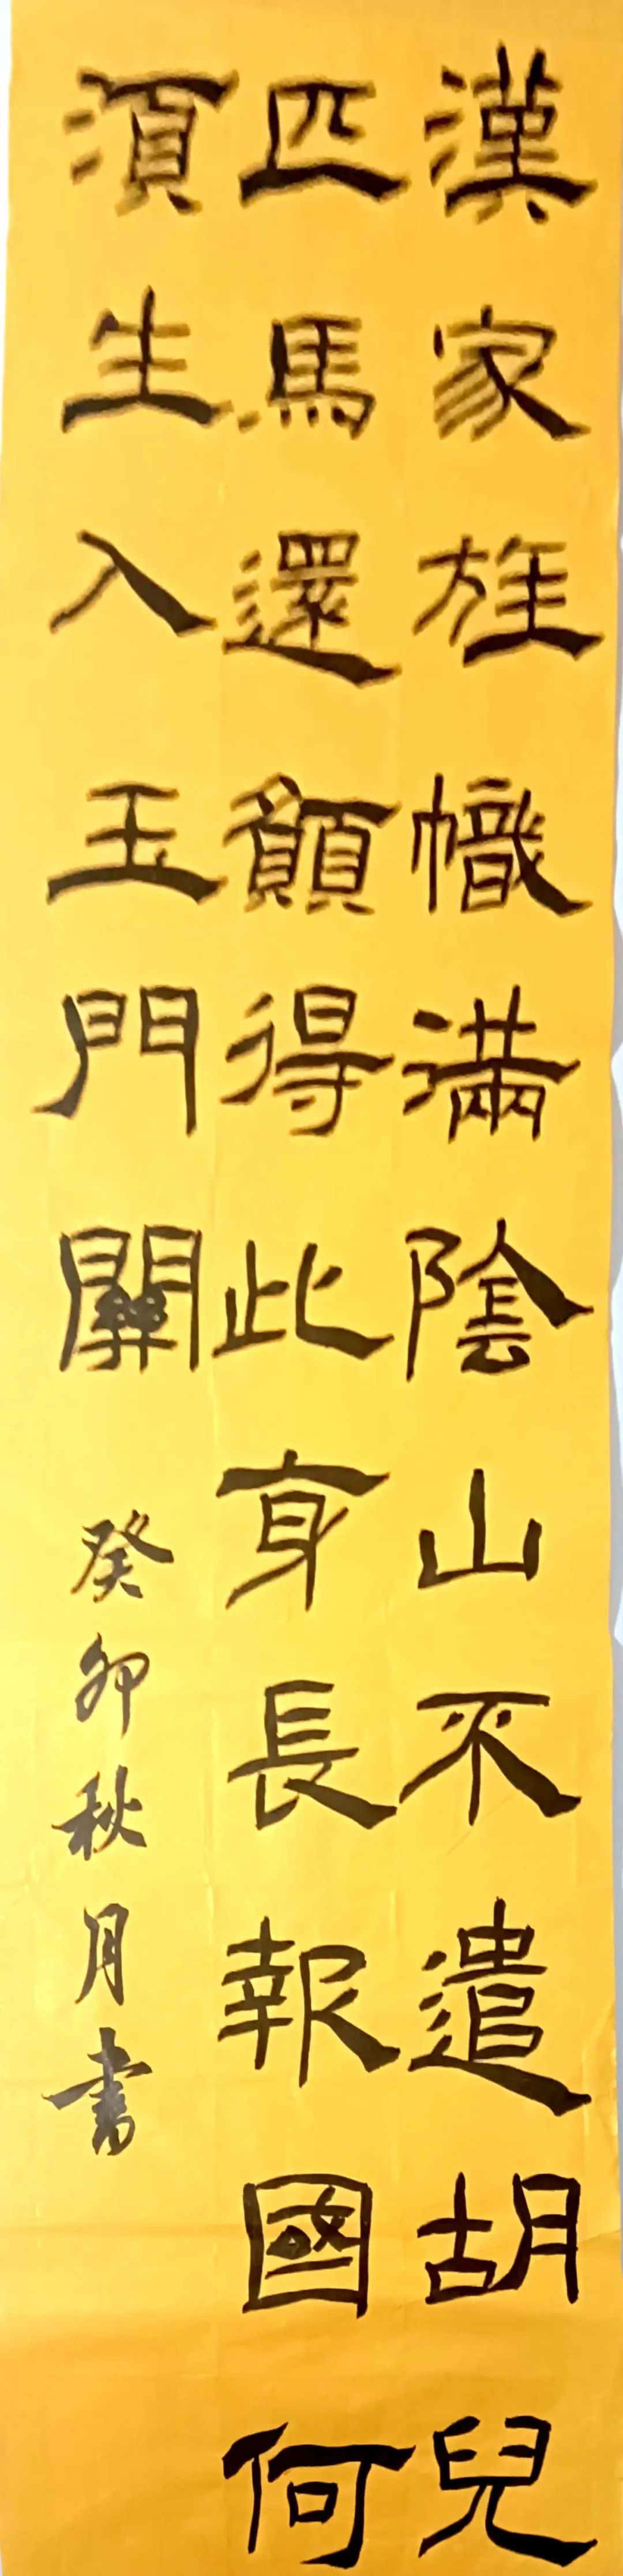 漢家旌幟滿陰山不遣胡兒
匹馬還願得此身長報國何
須生入玉門關
癸卯秋月書